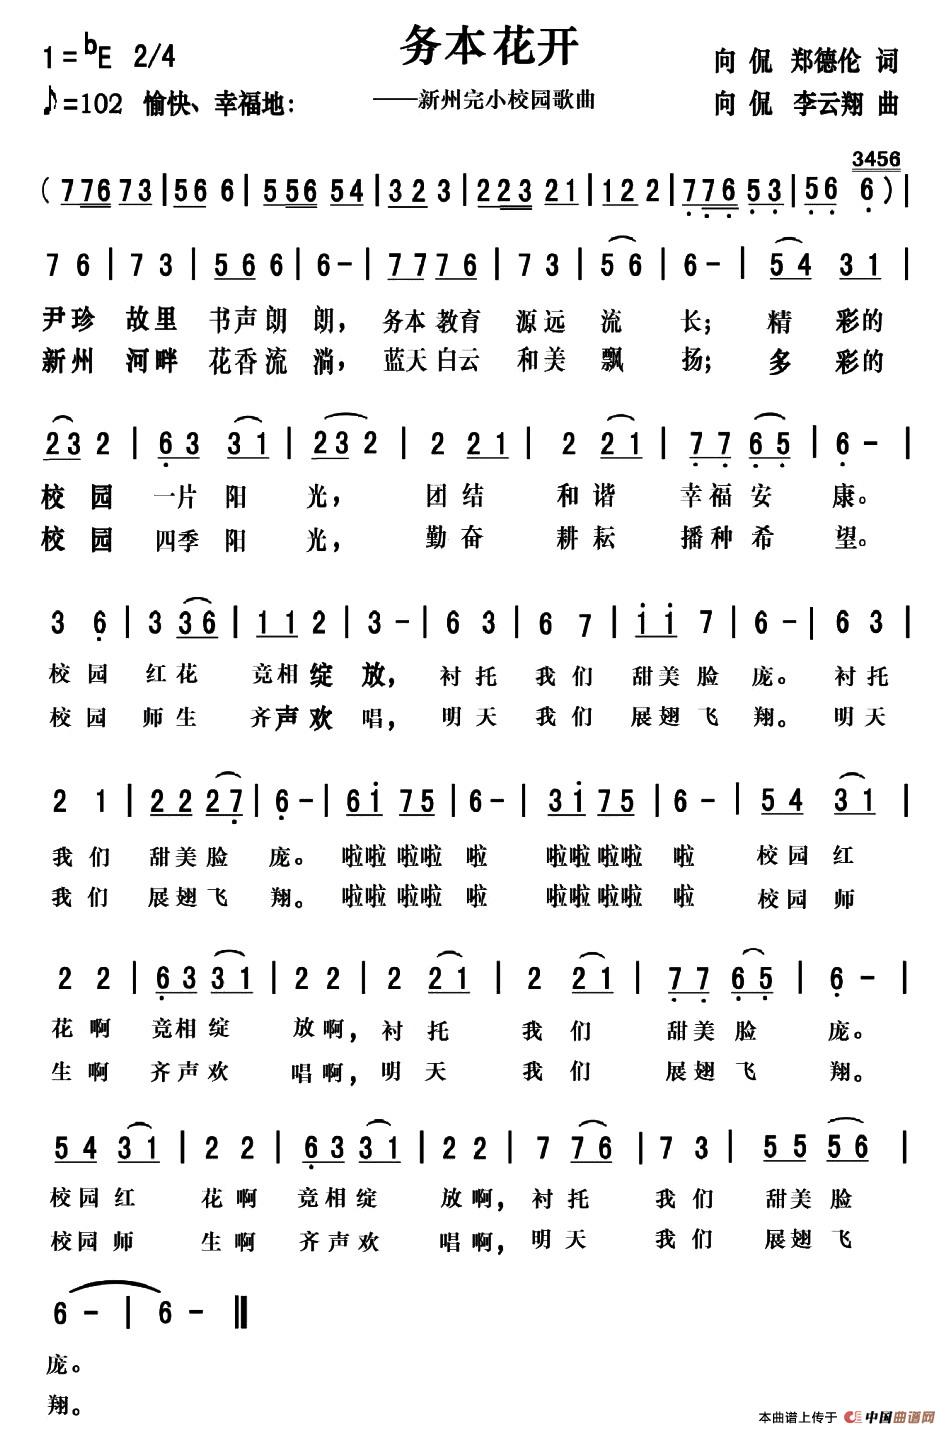 务本花开
1=♭E 2/4
向侃 郑德伦 词
♪=102 愉快、幸福地：
——新州完小校园歌曲
向侃 李云翔 曲
3456
(776 73|56 6|556 54|32 3|223 21|12 2|776 53|56 6)|
7 6|7 3|56 6|6-|77 76|7 3|5 6|6-|54 31|
尹珍 故里 书声朗 朗， 务本教育 源远 流 长； 精 彩的
新州 河畔 花香流 淌， 蓝天白云 和美 飘 扬； 多 彩的
23 2|63 31|23 2|2 21|2 21|77 65|6-|
校 园 一片 阳 光， 团结 和谐 幸福安 康。
校 园 四季 阳 光， 勤奋 耕耘 播种希 望。
3 6|3 36|11 2|3-|6 3|6 7|11 7|6-|6 3|
校园 红花 竞相绽 放， 衬托 我们 甜美脸 庞。 衬托
校园 师生 齐声欢 唱， 明天 我们 展翅飞 翔。 明天
2 1|22 27|6-|61 75|6-|31 75|6-|54 31|
我们 甜美脸 庞。 啦啦 啦啦 啦 啦啦 啦啦 啦 校园 红
我们 展翅飞 翔。 啦啦 啦啦 啦 啦啦 啦啦 啦 校园 师
2 2|63 31|2 2|2 21|2 21|77 65|6-|
花啊 竞相绽 放啊， 衬托 我们 甜美脸 庞。
生啊 齐声欢 唱啊， 明天 我们 展翅飞 翔。
54 31|2 2|63 31|2 2|7 76|7 3|55 56|
校园红 花啊 竞相绽 放啊， 衬托 我们 甜美脸
校园师 生啊 齐声欢 唱啊， 明天 我们 展翅飞
6-|6-‖
庞。
翔。
本曲谱上传于 中国曲谱网